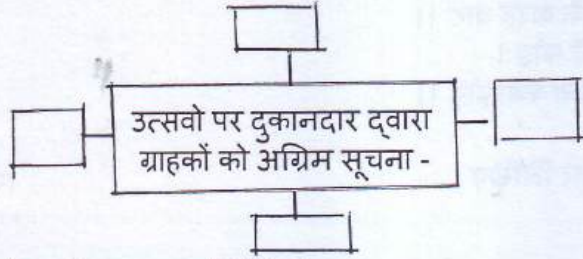 उत्सवो पर दुकानदार द्वारा
ग्राहकों को अग्रिम सूचना -